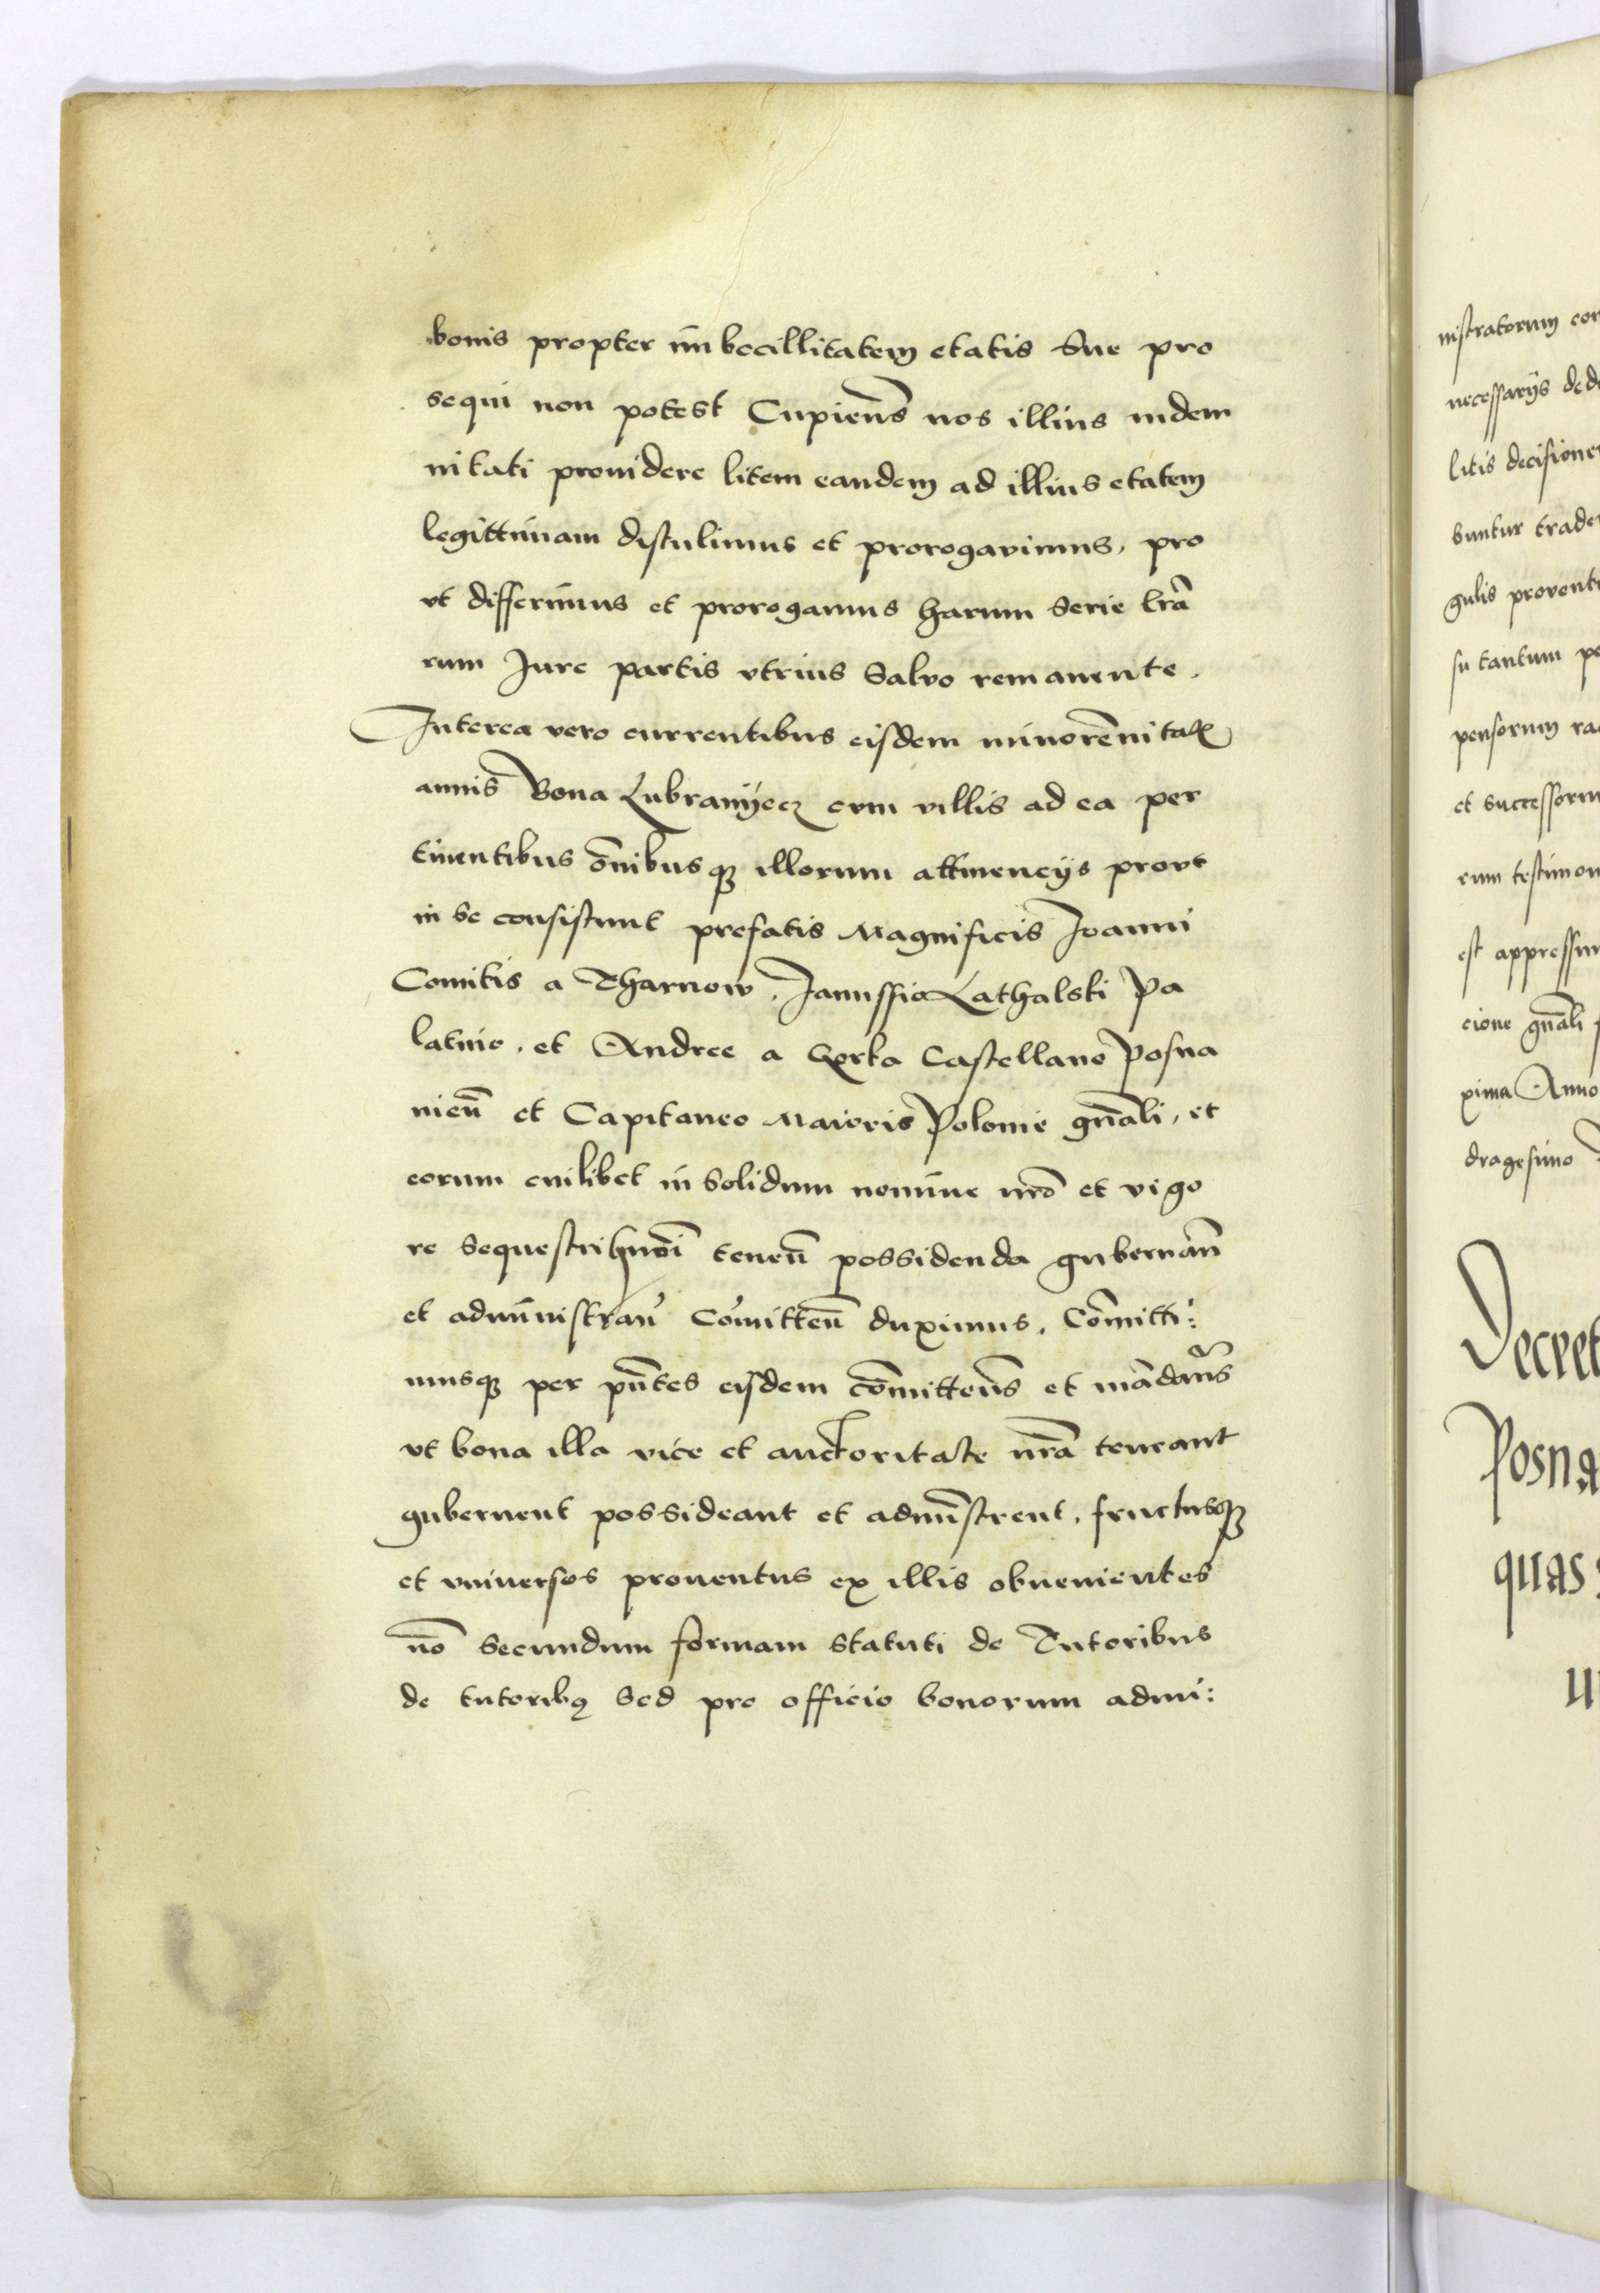 bonis propter imbecillitatem etatis sue pro
sequi non potest Cupien̄s nos illius indem
nitati prouidere litem eandem ad illius etatem
legittimam distulimus et prorogavimus, pro
vt differimus et prorogamus harum serie lrā
rum Jure partis vtrius salvo remanente.
Interea vero currentibus eisdem minorēnitatꝭ
annis Bona Lubranyecz cvm villis ad ea per
tinentibus ōnibusqꝫ illorum attinencijs provt
in se consistunt prefatis Magnificis Joanni
Comitis a Tharnow, Janussio Lathalski Pa
latino, et Andree a Gorka Castellano Posna
nien̄ et Capitaneo Maioris Polonie gn̄ali, et
eorum cuilibet in solidum nomine nrō et vigo
re sequestri hmōi tenen̄ possidenda gubernān
et administran̄ Cōmitten̄ duximus. Cōmitti:
musqꝫ per pn̄tes eisdem cōmitten̄s et mādan̄s
vt bona illa vice et auctoritate nrā teneant
gubernent possideant et admīstrent, fructusqꝫ
et vniversos prouentus ex illis obuenientes
nō secundum formam statuti de Tutoribus
de tutoribꝯ sed pro officio bonorum admi:
nistratorum
necessarijs
litis
buntur
gulis
su tantum
pensorum
et successorum
rum
est
cione gn̄ali
xima Anno
dragesimo
Posna
quas